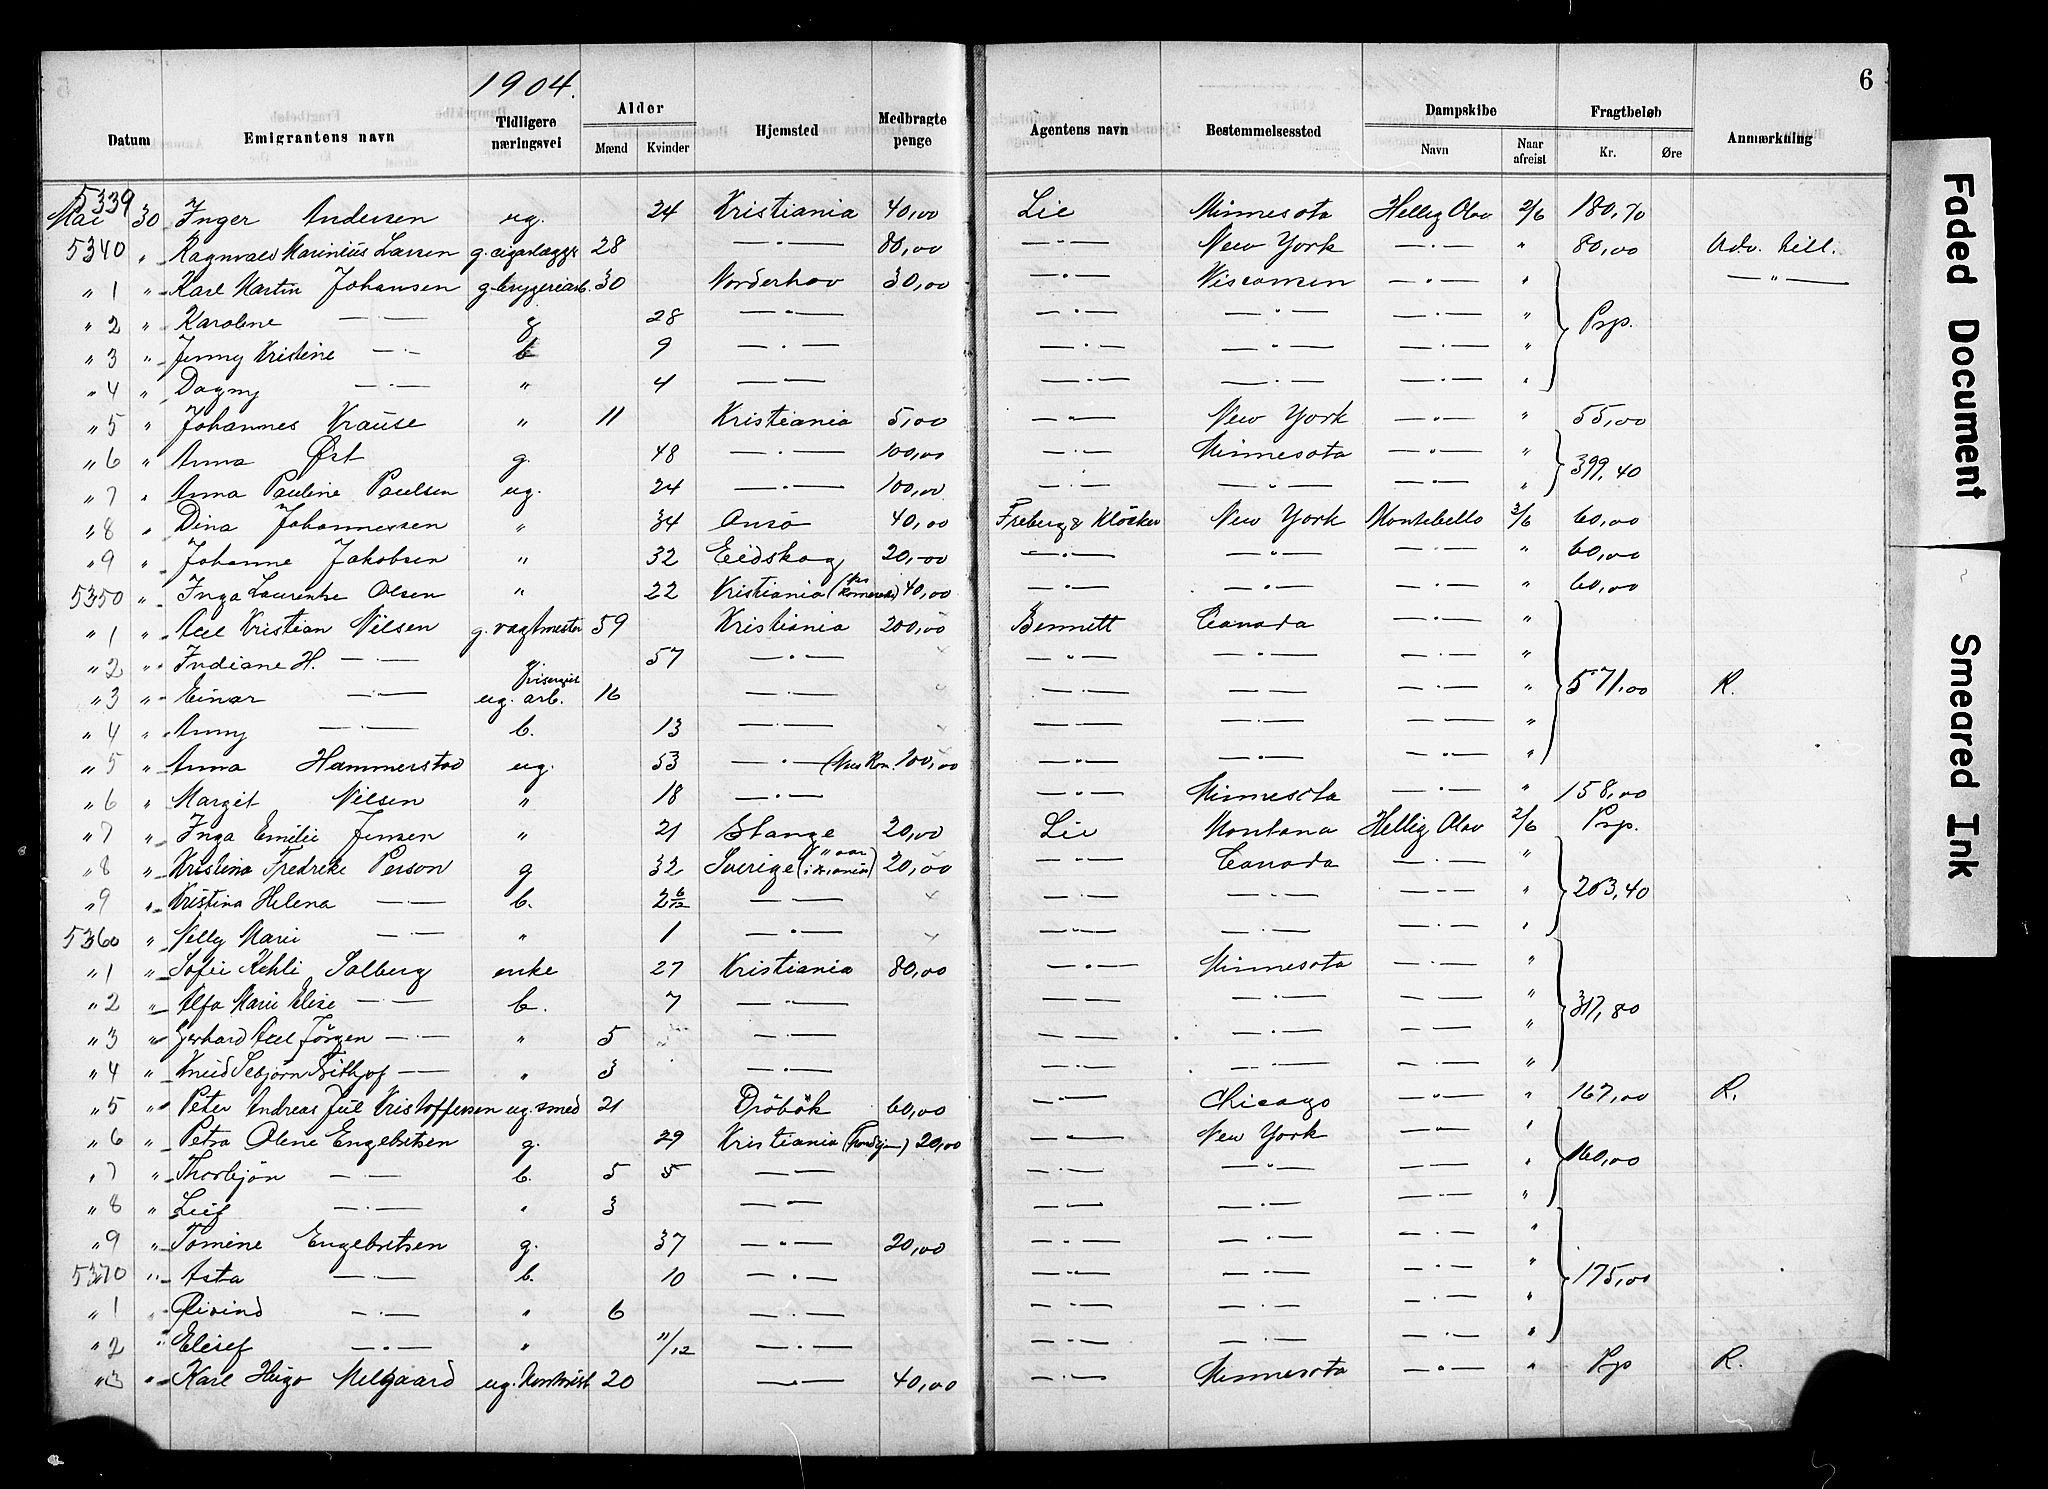 1904.
6
Datum Emigrantens navn Tidligere næringsvei Alder Mænd Kvinder Hjemsted Medbragte penge Agentens navn Bestemmelsessted Dampskibe Navn Naar afreist Fragtbeløb Kr. Øre Anmærkning
5339 Mai 30 Inger Andersen ug. 24 Kristiania 40,00 Lie Minnesota Hellig Olav 2/6 180,70
5340 " Ragnvald Marinius Larsen g. 28 — " — 80,00 — " — New York — " — " 80,00 Adv. till.
" 1 " Karl Martin Johansen g. bryggeriarb. 30 Norderhov 30,00 — " — Wisconsin — " — " Prp. — " —
" 2 " Karoline — " — g 28 — " — — " — — " — — " — "
" 3 " Jenny Kristine — " — b 9 — " — — " — — " — — " — "
" 4 " Dagny — " — " 4 — " — — " — — " — — " — "
" 5 " Johannes Krause " 11 Kristiania 5,00 — " — New York — " — " 55,00
" 6 " Anna Øst g. 48 — " — 100,00 — " — Minnesota — " — " 399,40
" 7 " Anna Pauline Paulsen ug. 24 — " — 100,00 — " — — " — — " — "
" 8 " Dina Johannessen " 34 Onsø 40,00 Freberg & Klöcker New York Montebello 3/6 60,00
" 9 " Johanne Jakobsen " 32 Eidskog 20,00 — " — — " — — " — " 60,00
5350 " Inga Laurentse Olsen " 22 Kristiania 40,00 — " — — " — — " — " 60,00
" 1 " Axel Kristian Nilsen g. vagtmester 59 Kristiania 200,00 Bennett Canada — " — " 571,00
" 2 " Indiane H. — " — " 57 — " — — " — — " — — " — "
" 3 " Einar — " — ug. arb. 16 — " — — " — — " — — " — " R.
" 4 " Anny — " — b. 13 — " — — " — — " — — " — "
" 5 " Anna Hammerstad ug. 53 — " — 100,00 — " — — " — — " — "
" 6 " Margit Nilsen " 18 — " — — " — Minnesota — " — " 158,00
" 7 " Inga Emilie Jensen " 21 Stange 20,00 Lie Montana Hellig Olav 2/6 Prp.
" 8 " Kristina Fredrike Person g 32 Sverige 20,00 — " — Canada — " — " 203,40
" 9 " Kristina Helena — " — b. 2 6/12 — " — — " — — " — — " — "
5360 " Nelly Marie — " — " 1 — " — — " — — " — — " — "
" 1 " Sofie Solberg enke 27 Kristiania 80,00 — " — Minnesota — " — " 317,80
" 2 " Alfa Marie Elise — " — b. 7 — " — — " — — " — — " — "
" 3 " Gerhard Axel Jörgen — " — " 5 — " — — " — — " — — " — "
" 4 " Knud — " — " 3 — " — — " — — " — — " — "
" 5 " Peter Andreas Jul Kristoffersen ug. smed 21 Dröbak 60,00 — " — Chicago — " — " 167,00 R.
" 6 " Petra Oline Engebretsen g. 29 Kristiania 20,00 — " — New York — " — " 160,00
" 7 " Thorbjön — " — b. 5 5 — " — — " — — " — — " — "
" 8 " Leif — " — " 3 — " — — " — — " — — " — "
" 9 " Tomine Engebretsen g. 37 — " — 20,00 — " — — " — — " — " 175,00
5370 " Asta — " — b. 10 — " — — " — — " — — " — "
" 1 " Öivind — " — " 6 — " — — " — — " — — " — "
" 2 " Elisef — " — " 11/12 — " — — " — — " — — " — "
" 3 " Karl Hugo Melgaard ug. Kontorist 20 — " — 40,00 — " — Minnesota — " — " Prp R.
Faded Document
Smeared Ink